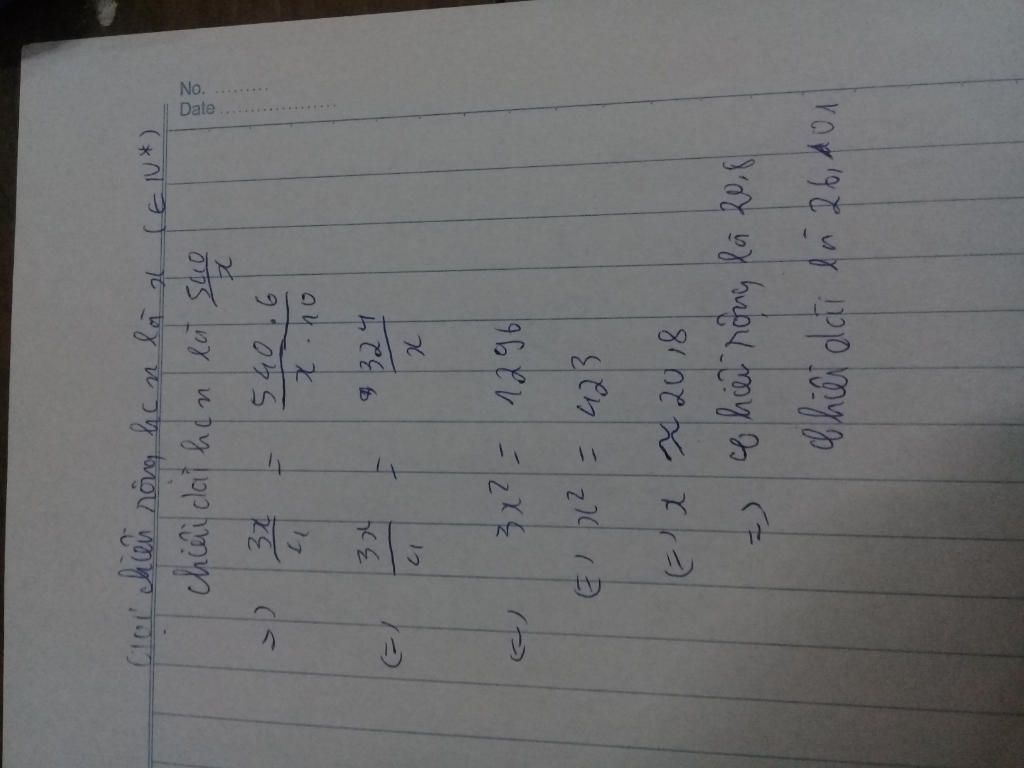 No. .........
Date ...................
Gọi chiều rộng hcn là x (∈ N*)
chiều dài hcn là 540/x
=> 3x/4 = 540.6/x.10
<=> 3x/4 = 324/x
<=> 3x² = 1296
<=> x² = 423
<=> x ≈ 20,8
=> chiều rộng là 20,8
chiều dài là 26,101